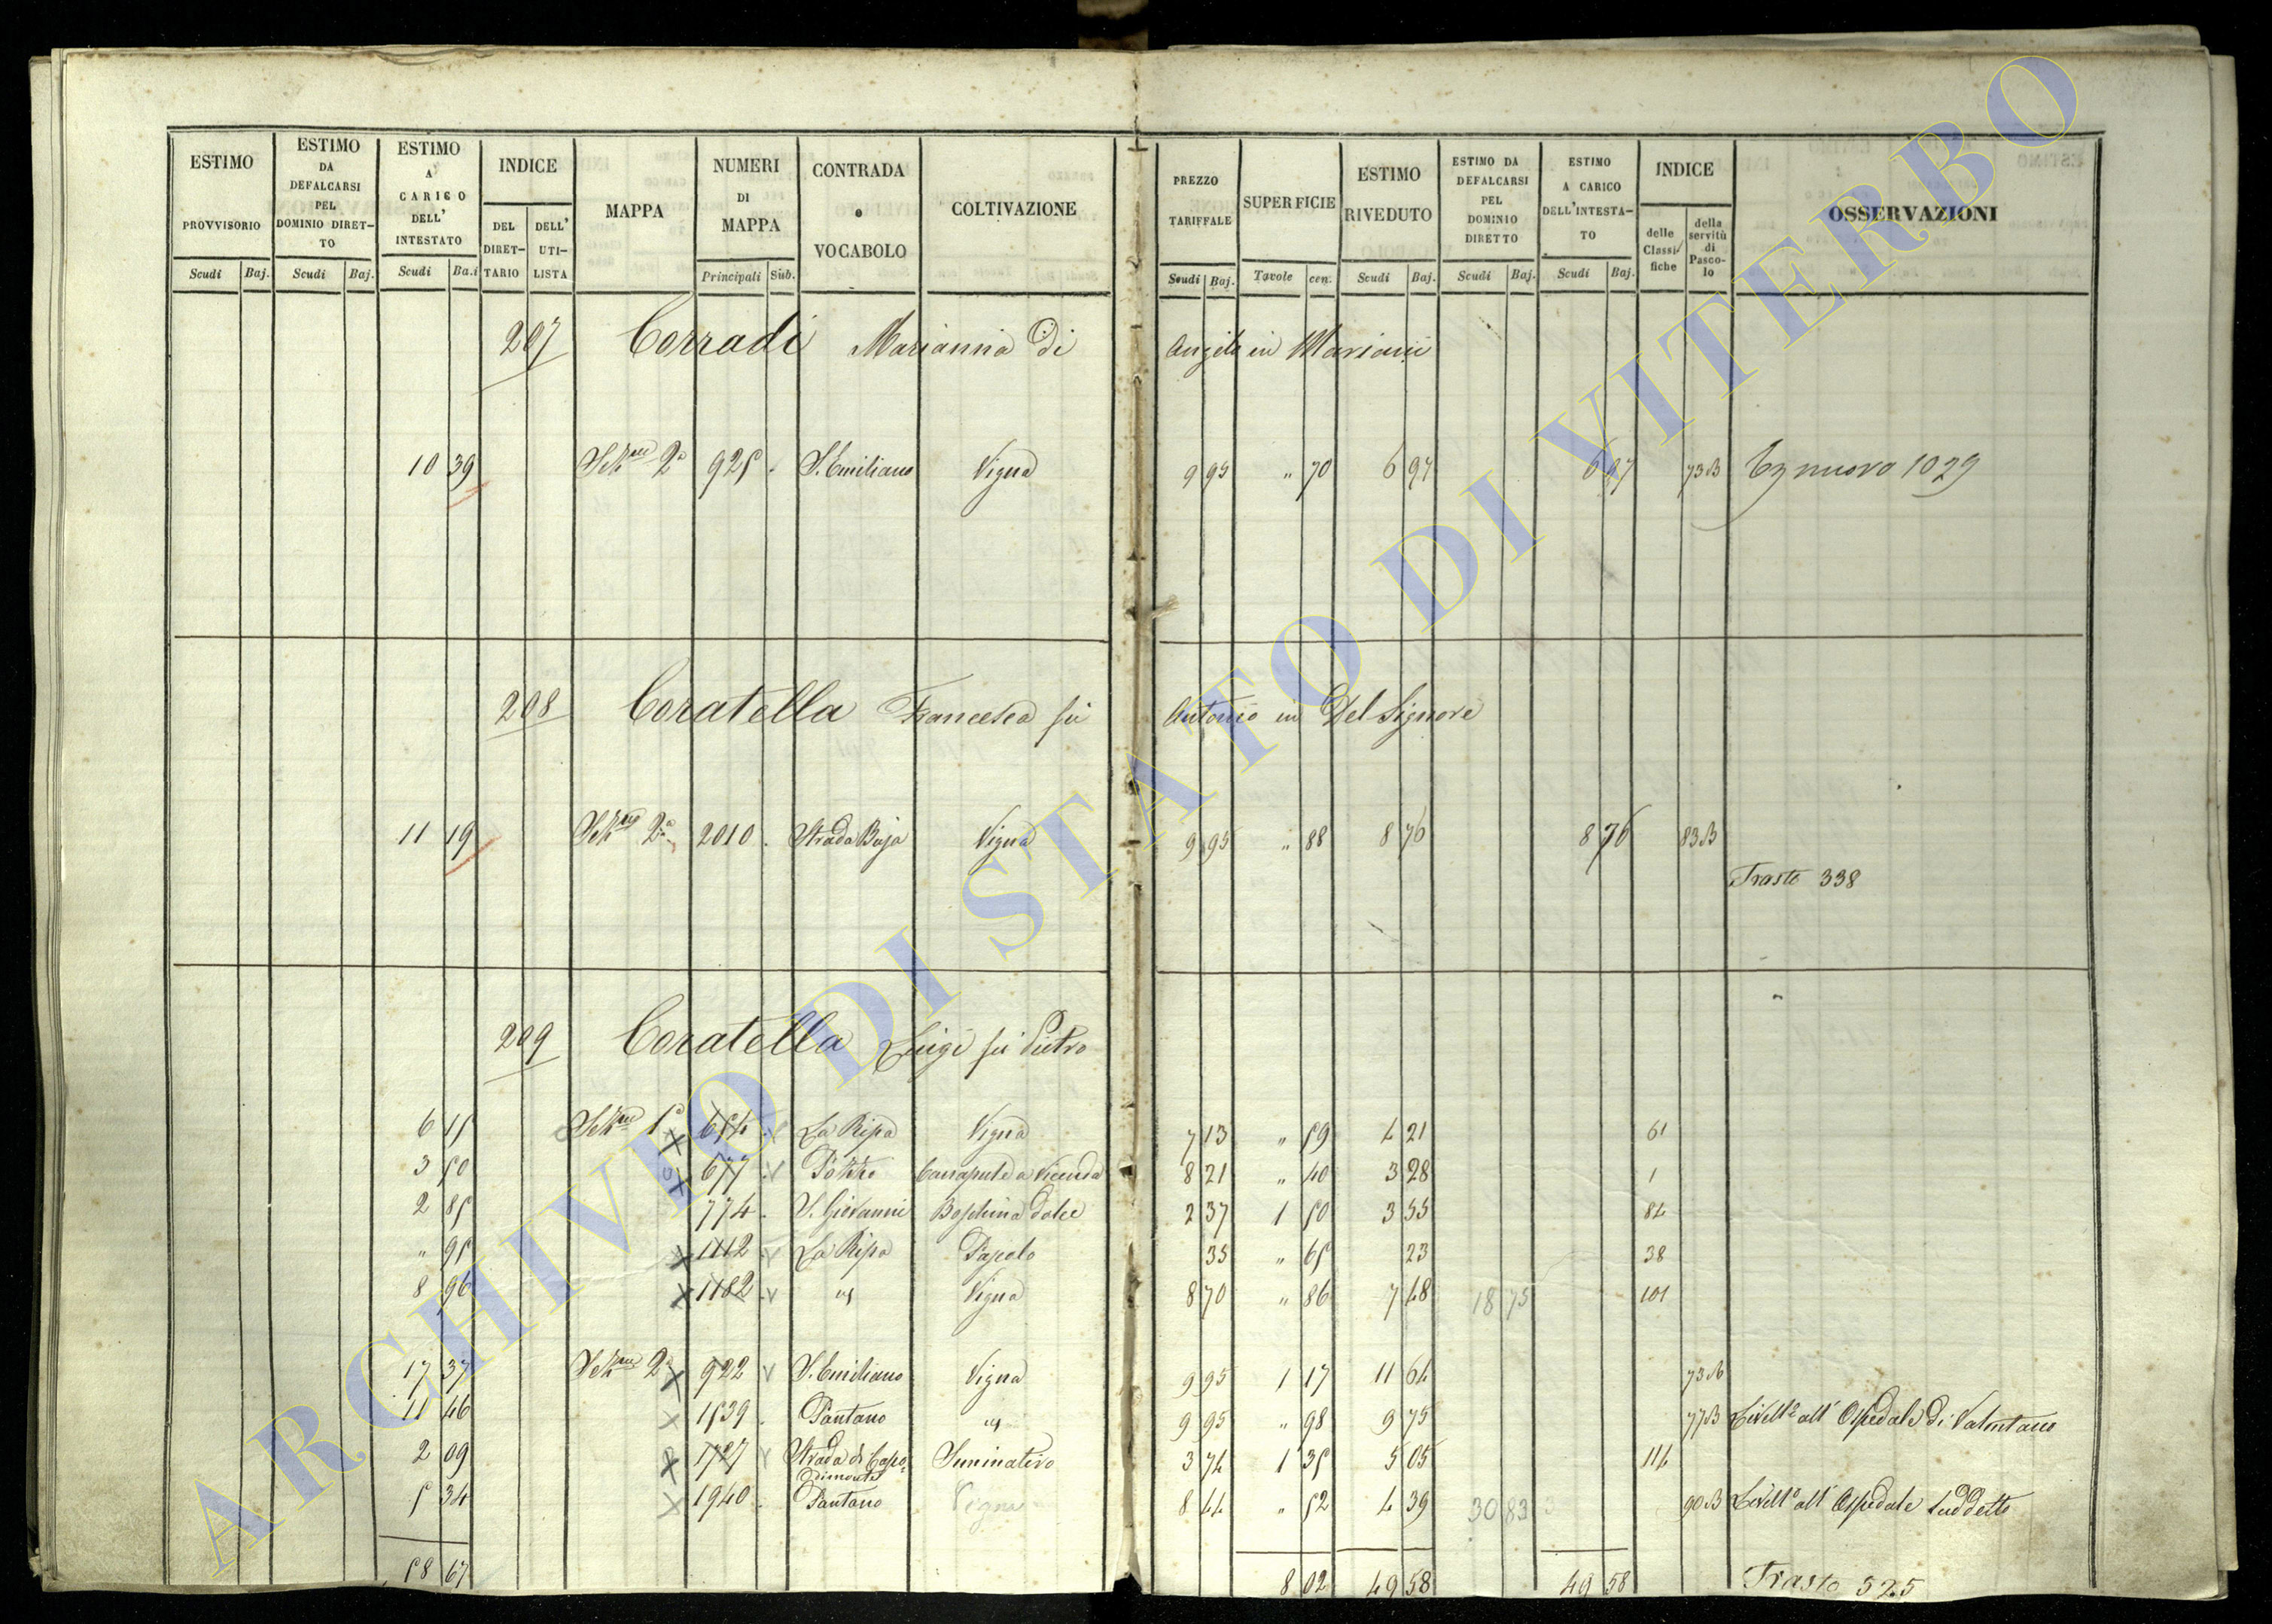 ESTIMO PROVVISORIO Scudi Baj. | ESTIMO DA DEFALCARSI PEL DOMINIO DIRETTO Scudi Baj. | ESTIMO A CARICO DELL' INTESTATO Scudi Ba.i | INDICE DEL DIRETTARIO DELL' UTILISTA | MAPPA | NUMERI DI MAPPA Principali Sub. | CONTRADA o VOCABOLO | COLTIVAZIONE | PREZZO TARIFFALE Scudi Baj. | SUPERFICIE Tavole cen. | ESTIMO RIVEDUTO Scudi Baj. | ESTIMO DA DEFALCARSI PEL DOMINIO DIRETTO Scudi Baj. | ESTIMO A CARICO DELL'INTESTATO Scudi Baj. | INDICE delle Classifiche della servitù di Pascolo | OSSERVAZIONI
207 Corradi Marianna di Angelo in Mariani
10 39 Sez.ne 2a 925 . S. Emiliano Vigna 9 95 " 70 6 97 6 97 73 B Eg nuovo 1029
208 Coratella Francesca fù Antonio in Del Signore
11 19 Sez.ne 2a 2010 . Strada Baja Vigna 9 95 " 88 8 76 8 76 83 B
Trasto 338
209 Coratella Luigi fù Pietro
6 15 Sez.ne 1a 654 La Ripa Vigna 7 13 " 59 4 21 61
3 50 677 Pozzo Canapule a Vicenda 8 21 " 40 3 28 1
2 85 774 . S. Giovanni Boschina dolce 2 37 1 50 3 55 84
" 95 1112 La Ripa Pascolo 35 " 65 23 38
8 96 1182 id Vigna 8 70 " 86 7 48 18 75 101
17 37 Sez.ne 2a 922 S. Emiliano Vigna 9 95 1 17 11 64 73 B
11 46 1539 . Pantano id 9 95 " 98 9 75 77 B Livell.o all' Ospedale di Valentano
2 09 1727 Strada di Capodimonte Seminativo 3 74 1 35 5 05 114
5 34 1940 . Pantano Vigna 8 44 " 52 4 39 30 83 90 B Livell.o all' Ospedale suddetto
58 67 8 02 49 58 49 58 Trasto 525
ARCHIVIO DI STATO DI VITERBO